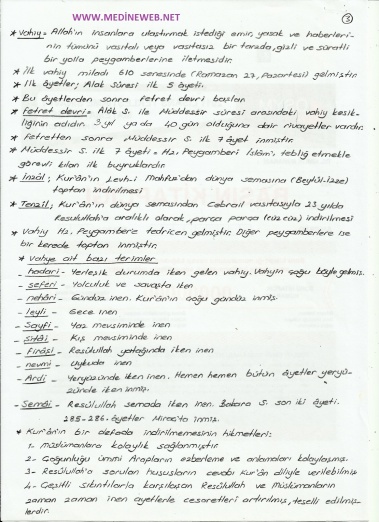 www.MEDİNEWEB.NET
3
* Vahiy = Allah'ın insanlara ulaştırmak istediği emir, yasak ve haberleri-
nin tümünü vasıtalı veya vasıtasız bir tarzda, gizli ve süratli
bir yolla peygamberlerine iletmesidir.
* İlk vahiy miladi 610 senesinde (Ramazan 27, Pazartesi) gelmiştir.
* İlk âyetler; Alâk Sûresi ilk 5 âyeti.
* Bu âyetlerden sonra fetret devri başlar.
* Fetret devri = Alâk S. ile Müddessir sûresi arasındaki vahiy kesik-
liğinin adıdır. 3 yıl ya da 40 gün olduğuna dair rivayetler vardır.
* Fetretten sonra Müddessir S. ilk 7 âyet inmiştir.
* Müddessir S. ilk 7 âyeti = Hz. Peygamberi İslâm'ı tebliğ etmekle
görevli kılan ilk buyruklardır.
* İnzâl; Kur'ân'ın Levh-i Mahfuz'dan dünya semasına (Beytül-İzze)
toptan indirilmesi
* Tenzil; Kur'ân'ın dünya semasından Cebrail vasıtasıyla 23 yılda
Resûlullah'a aralıklı olarak, parça parça (cüz cüz) indirilmesi
* Vahiy Hz. Peygambere tedricen gelmiştir. Diğer peygamberlere ise
bir kerede toptan inmiştir.
* Vahye ait bazı terimler
- hadari - Yerleşik durumda iken gelen vahiy. Vahyin çoğu böyle gelmiş.
- seferi - Yolculuk ve savaşta iken
- nehâri - Gündüz inen. Kur'ân'ın çoğu gündüz inmiş.
- leyli - Gece inen
- Sayfi - Yaz mevsiminde inen
- şitâi - Kış mevsiminde inen
- Firâşi - Resûlullah yatağında iken inen
- nevmi - Uykuda inen
- Ardi - Yeryüzünde iken inen. Hemen hemen bütün âyetler yeryü-
zünde iken inmiş.
- Semâi - Resûlullah semada iken inen. Bakara S. son iki âyeti.
285-286. âyetler Mirac'ta inmiş.
* Kur'ân'ın bir defada indirilmemesinin hikmetleri:
1- Müslümanlara kolaylık sağlanmıştır
2- Çoğunluğu ümmi Arapların ezberleme ve anlamaları kolaylaşmış.
3- Resûlullah'a sorulan hususların cevabı Kur'ân diliyle verilebilmiş
4- Çeşitli sıkıntılarla karşılaşan Resûlullah ve Müslümanların
zaman zaman inen ayetlerle cesaretleri artırılmış, teselli edilmiş-
lerdir.